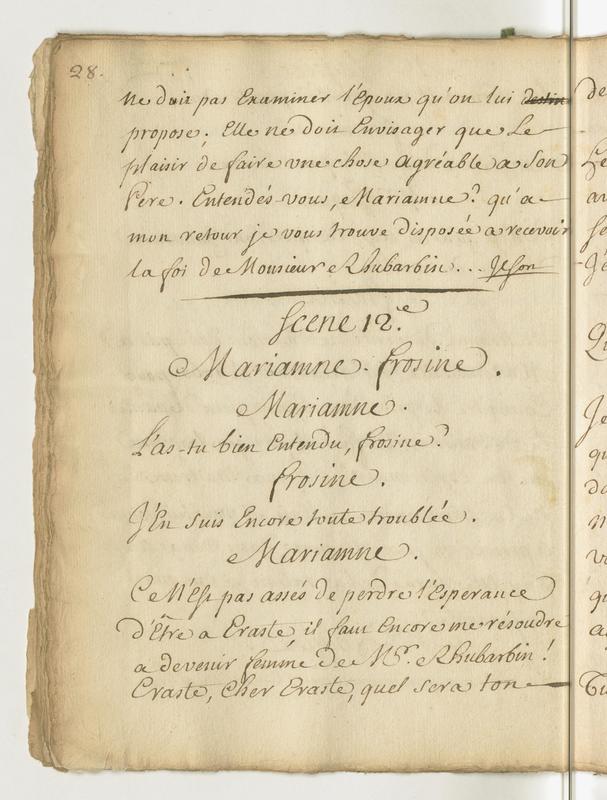 28.
ne doit pas Examiner l'Epoux qu'on lui destin
propose. Elle ne doit Envisager que Le
plaisir de faire une chose agréable a Son
Pere. Entendés-vous, Mariamne? qu'a
mon retour je vous trouve disposée a recevoir
la foi de Monsieur Rhubarbin... Il sort
Scene 12.e
Mariamne. frosine.
Mariamne.
L'as-tu bien Entendu, frosine?
frosine.
J'En suis Encore toute troublée.
Mariamne.
Ce N'Est pas assés de perdre l'Esperance
d'Être a Eraste il faut Encore me résoudre
a devenir femme De Mr. Rhubarbin!
Eraste, Cher Eraste, quel sera ton